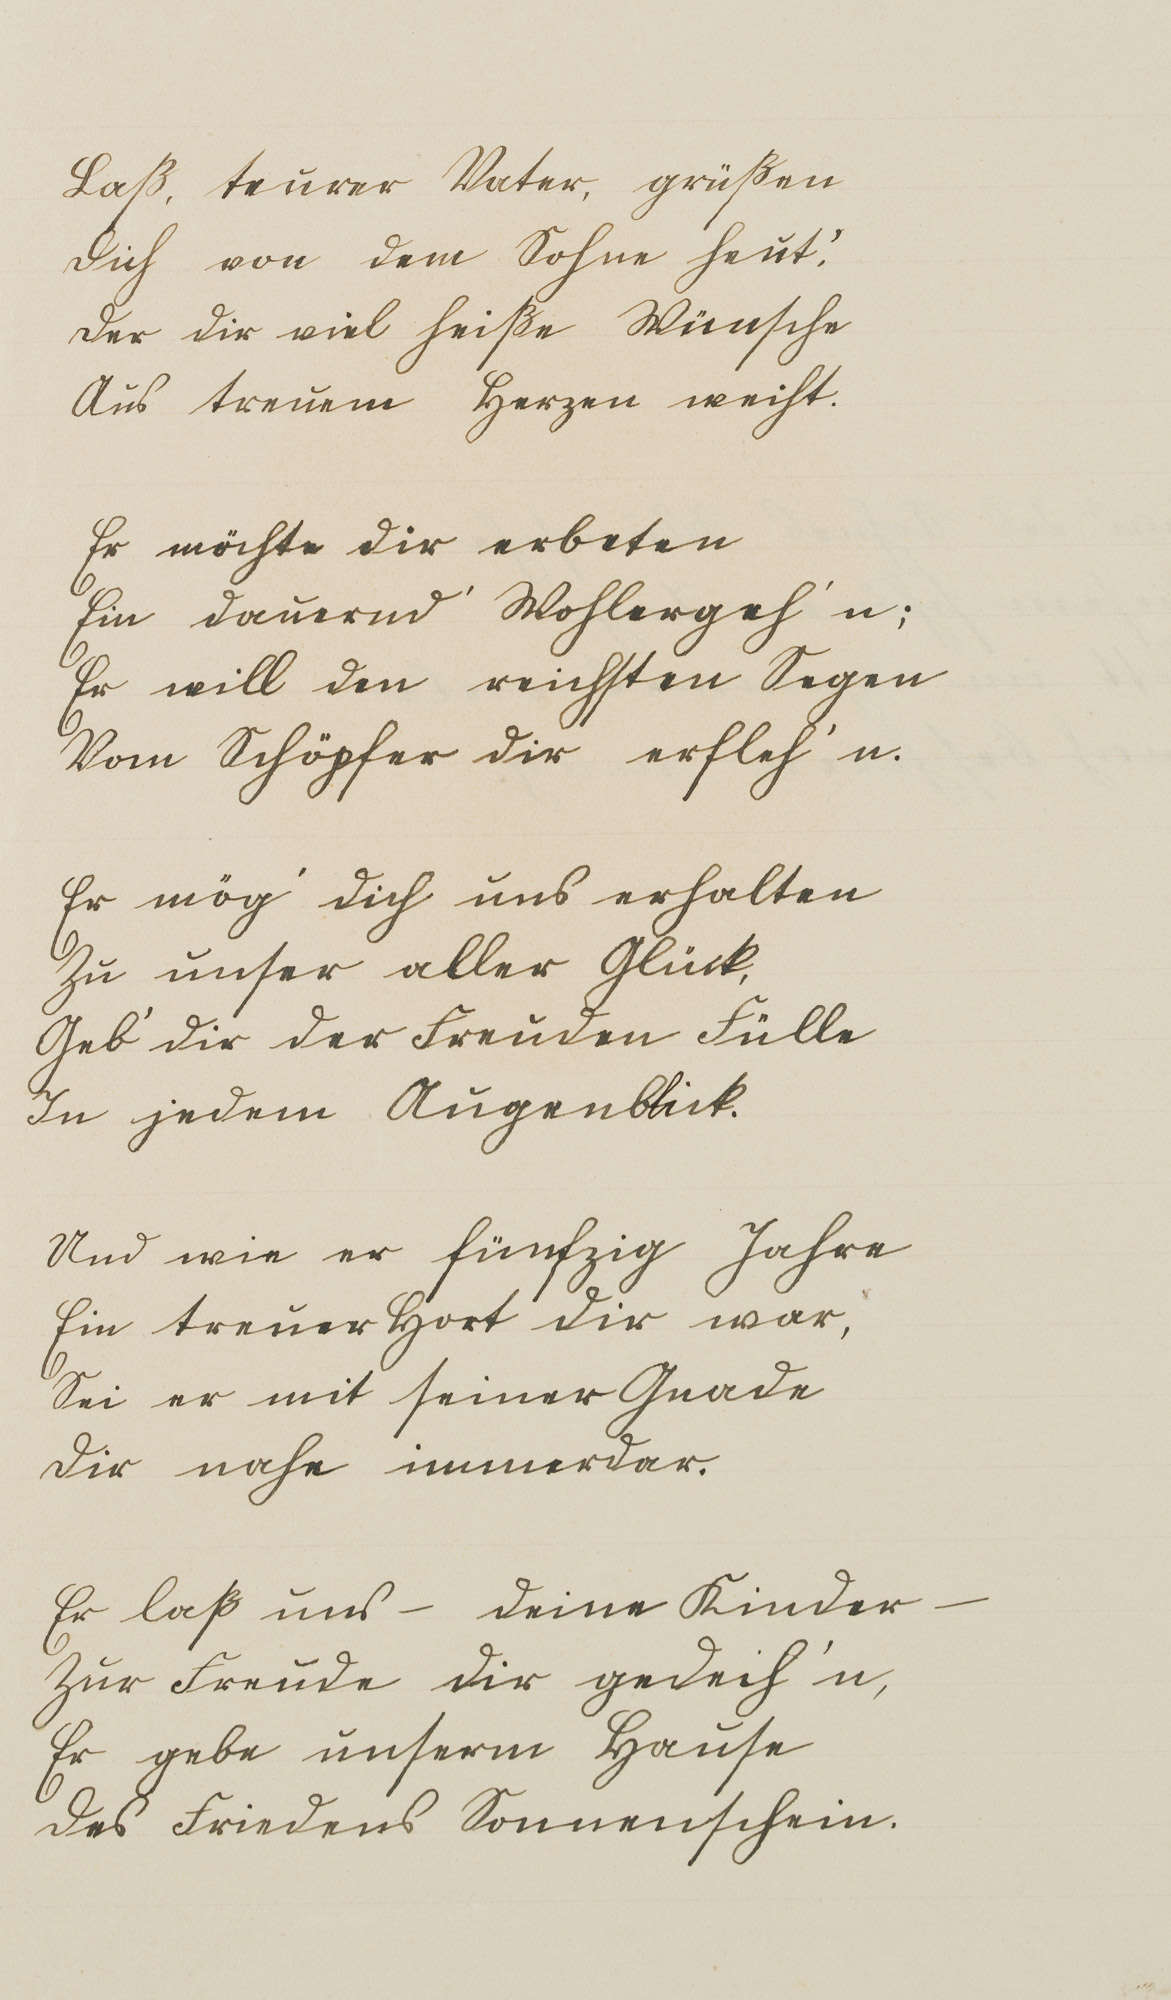 Laß, teurer Vater, grüßen
Dich von dem Sohne heut',
Der dir viel heiße Wünsche
Aus treuem Herzen weiht.
Er möchte dir erbeten
Ein dauernd' Wohlergeh'n;
Er will den reichsten Segen
Vom Schöpfer dir erfleh'n.
Er mög' dich uns erhalten
Zu unser aller Glück,
Geb' dir der Freuden Fülle
In jedem Augenblick.
Und wie er fünfzig Jahre
Ein treuer Hort dir war,
Sei er mit seiner Gnade
Dir nahe immerdar.
Er laß uns – deine Kinder –
Zur Freude dir gedeih'n,
Er gebe unserm Hause
Des Friedens Sonnenschein.